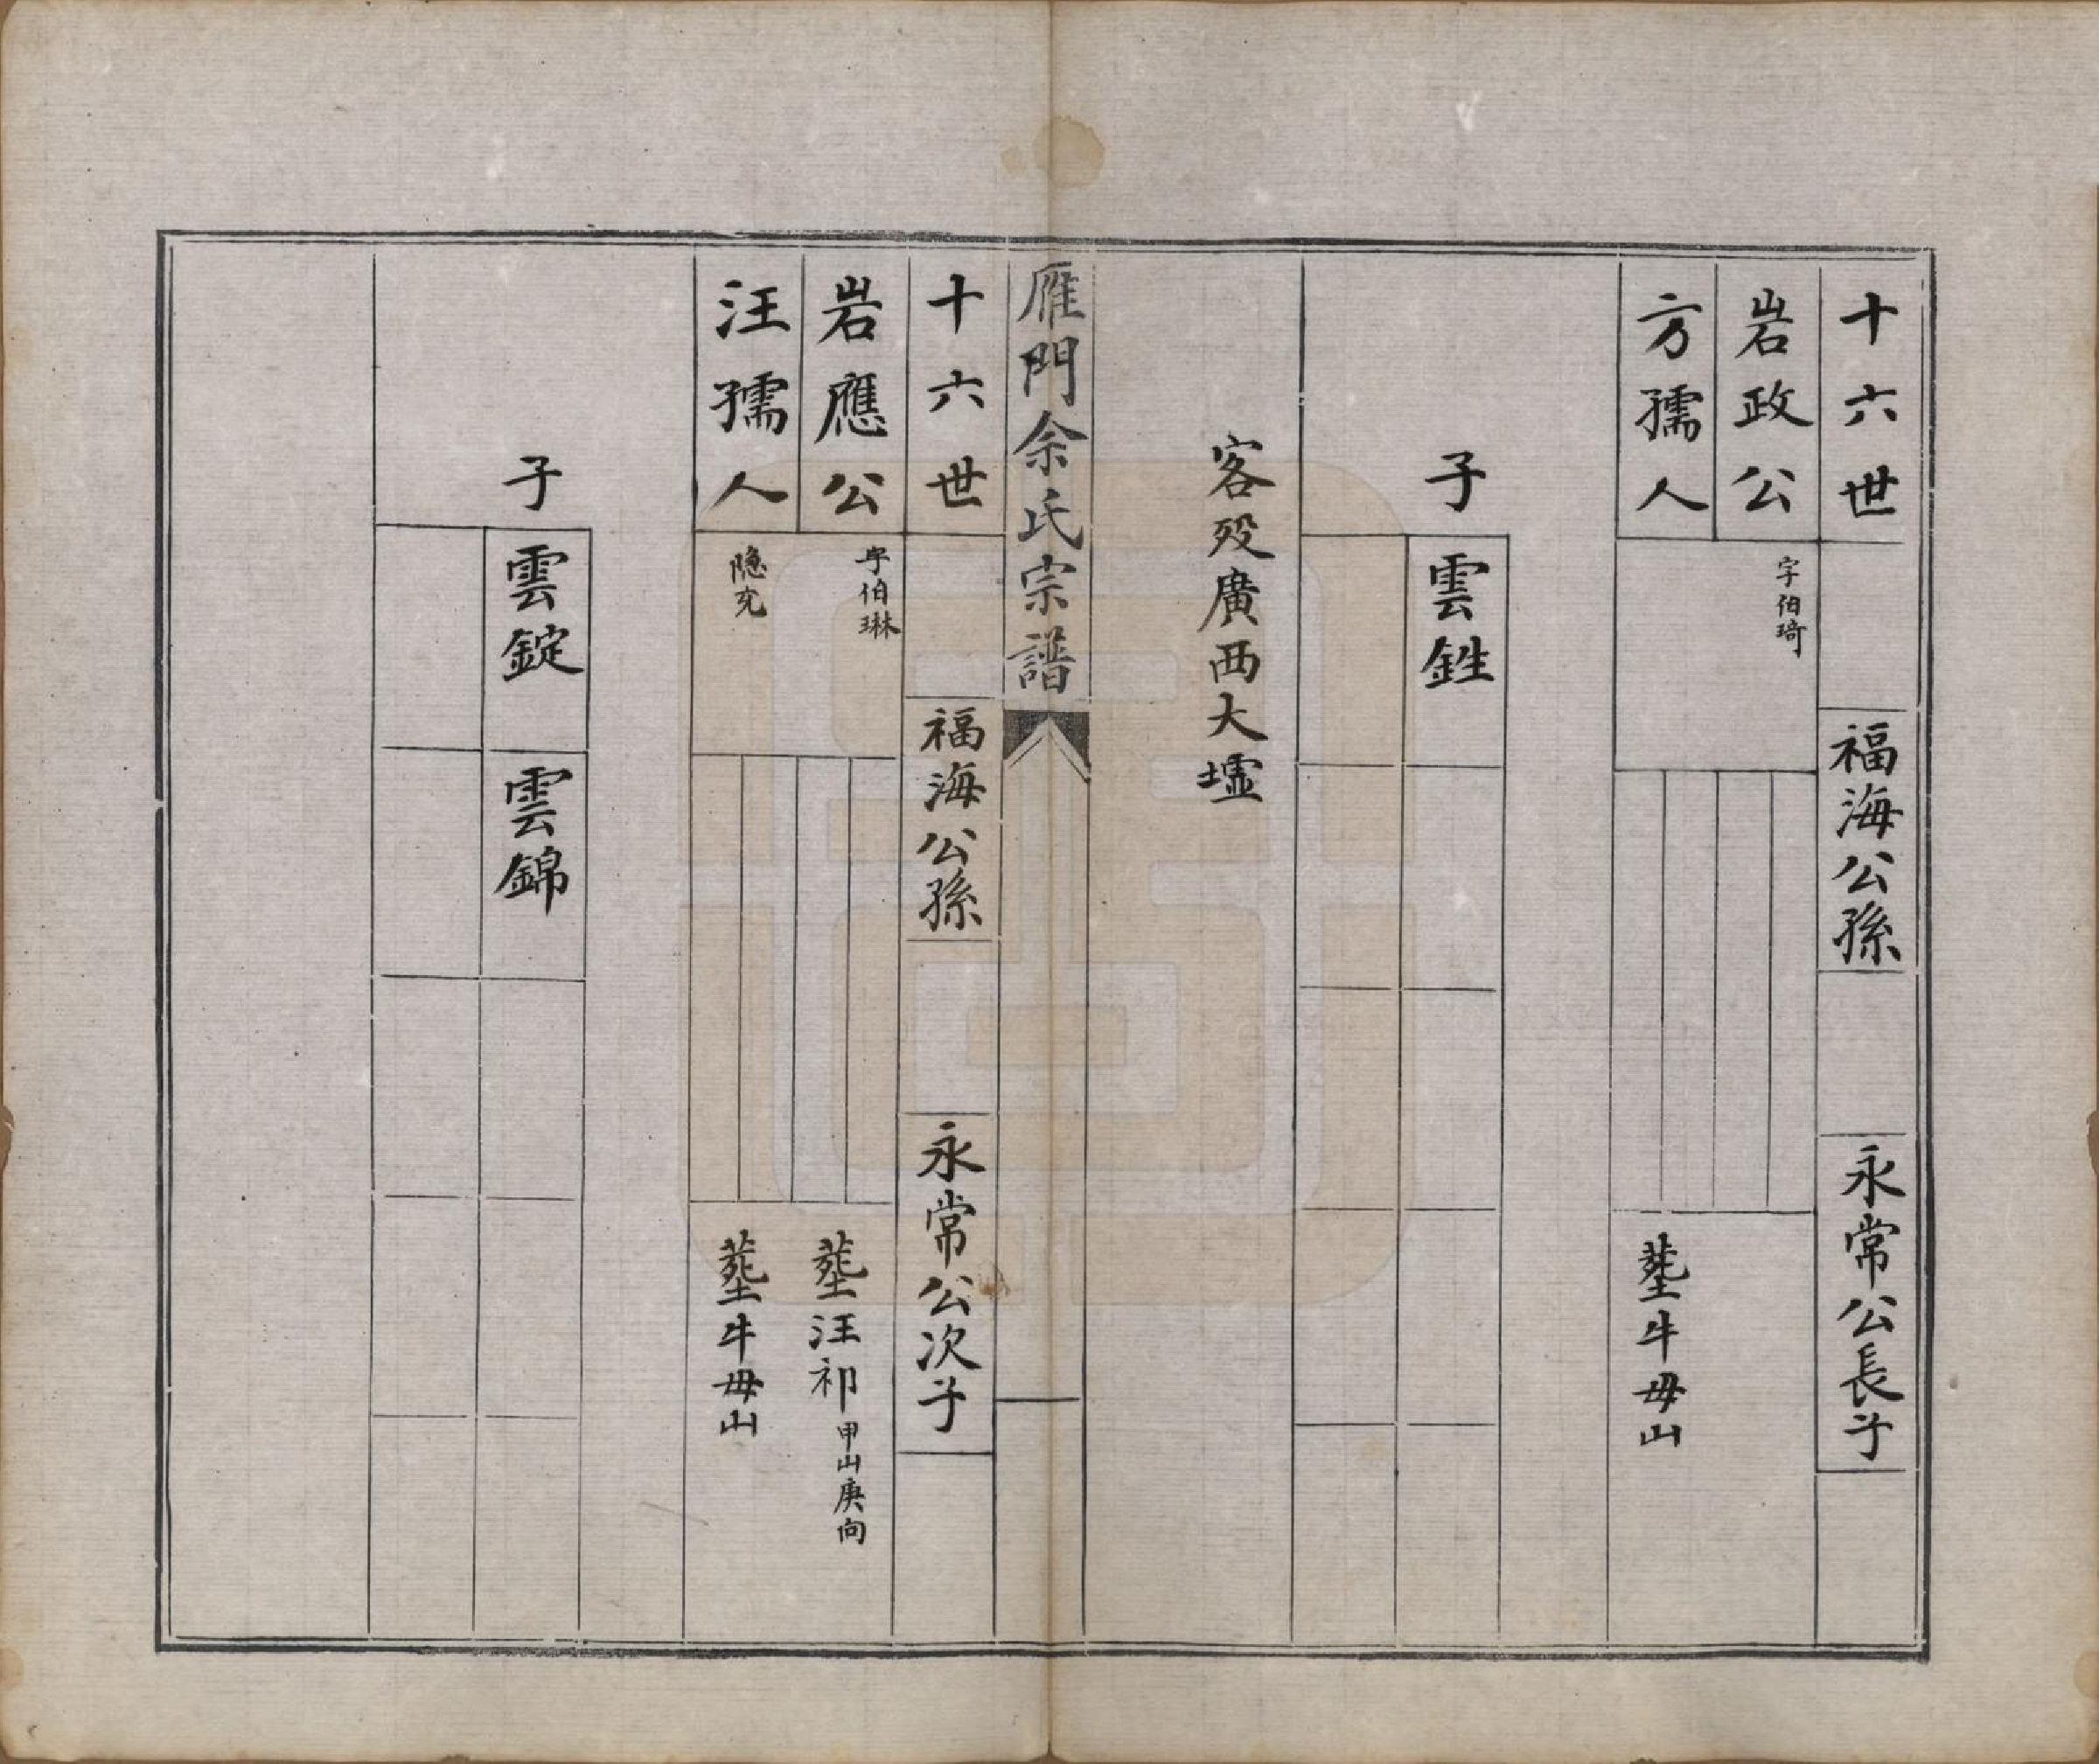 十六世
福海公孫
永常公長子
岩政公
字伯琦
方孺人
塟牛毋山
子
雲鉎
客歿廣西大墟
雁門余氏宗譜
十六世
福海公孫
永常公次子
岩應公
字伯琳
塟汪祁甲山庚向
汪孺人
隐充
塟牛毋山
子
雲錠
雲錦